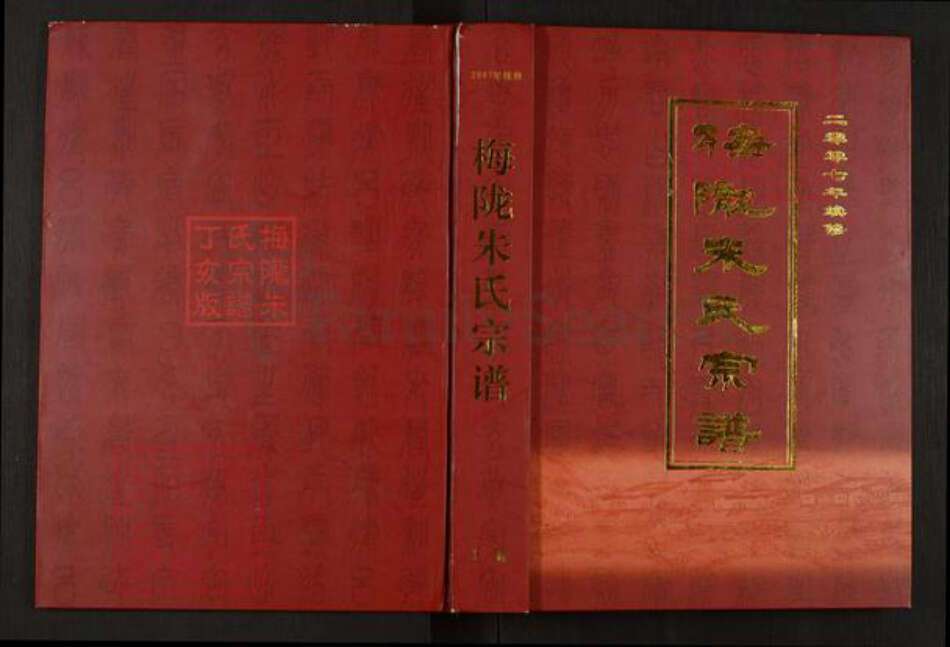 二零零七年续修
梅陇朱氏宗譜
2007年续修
梅陇朱氏宗谱
梅隴朱
氏宗譜
丁亥版